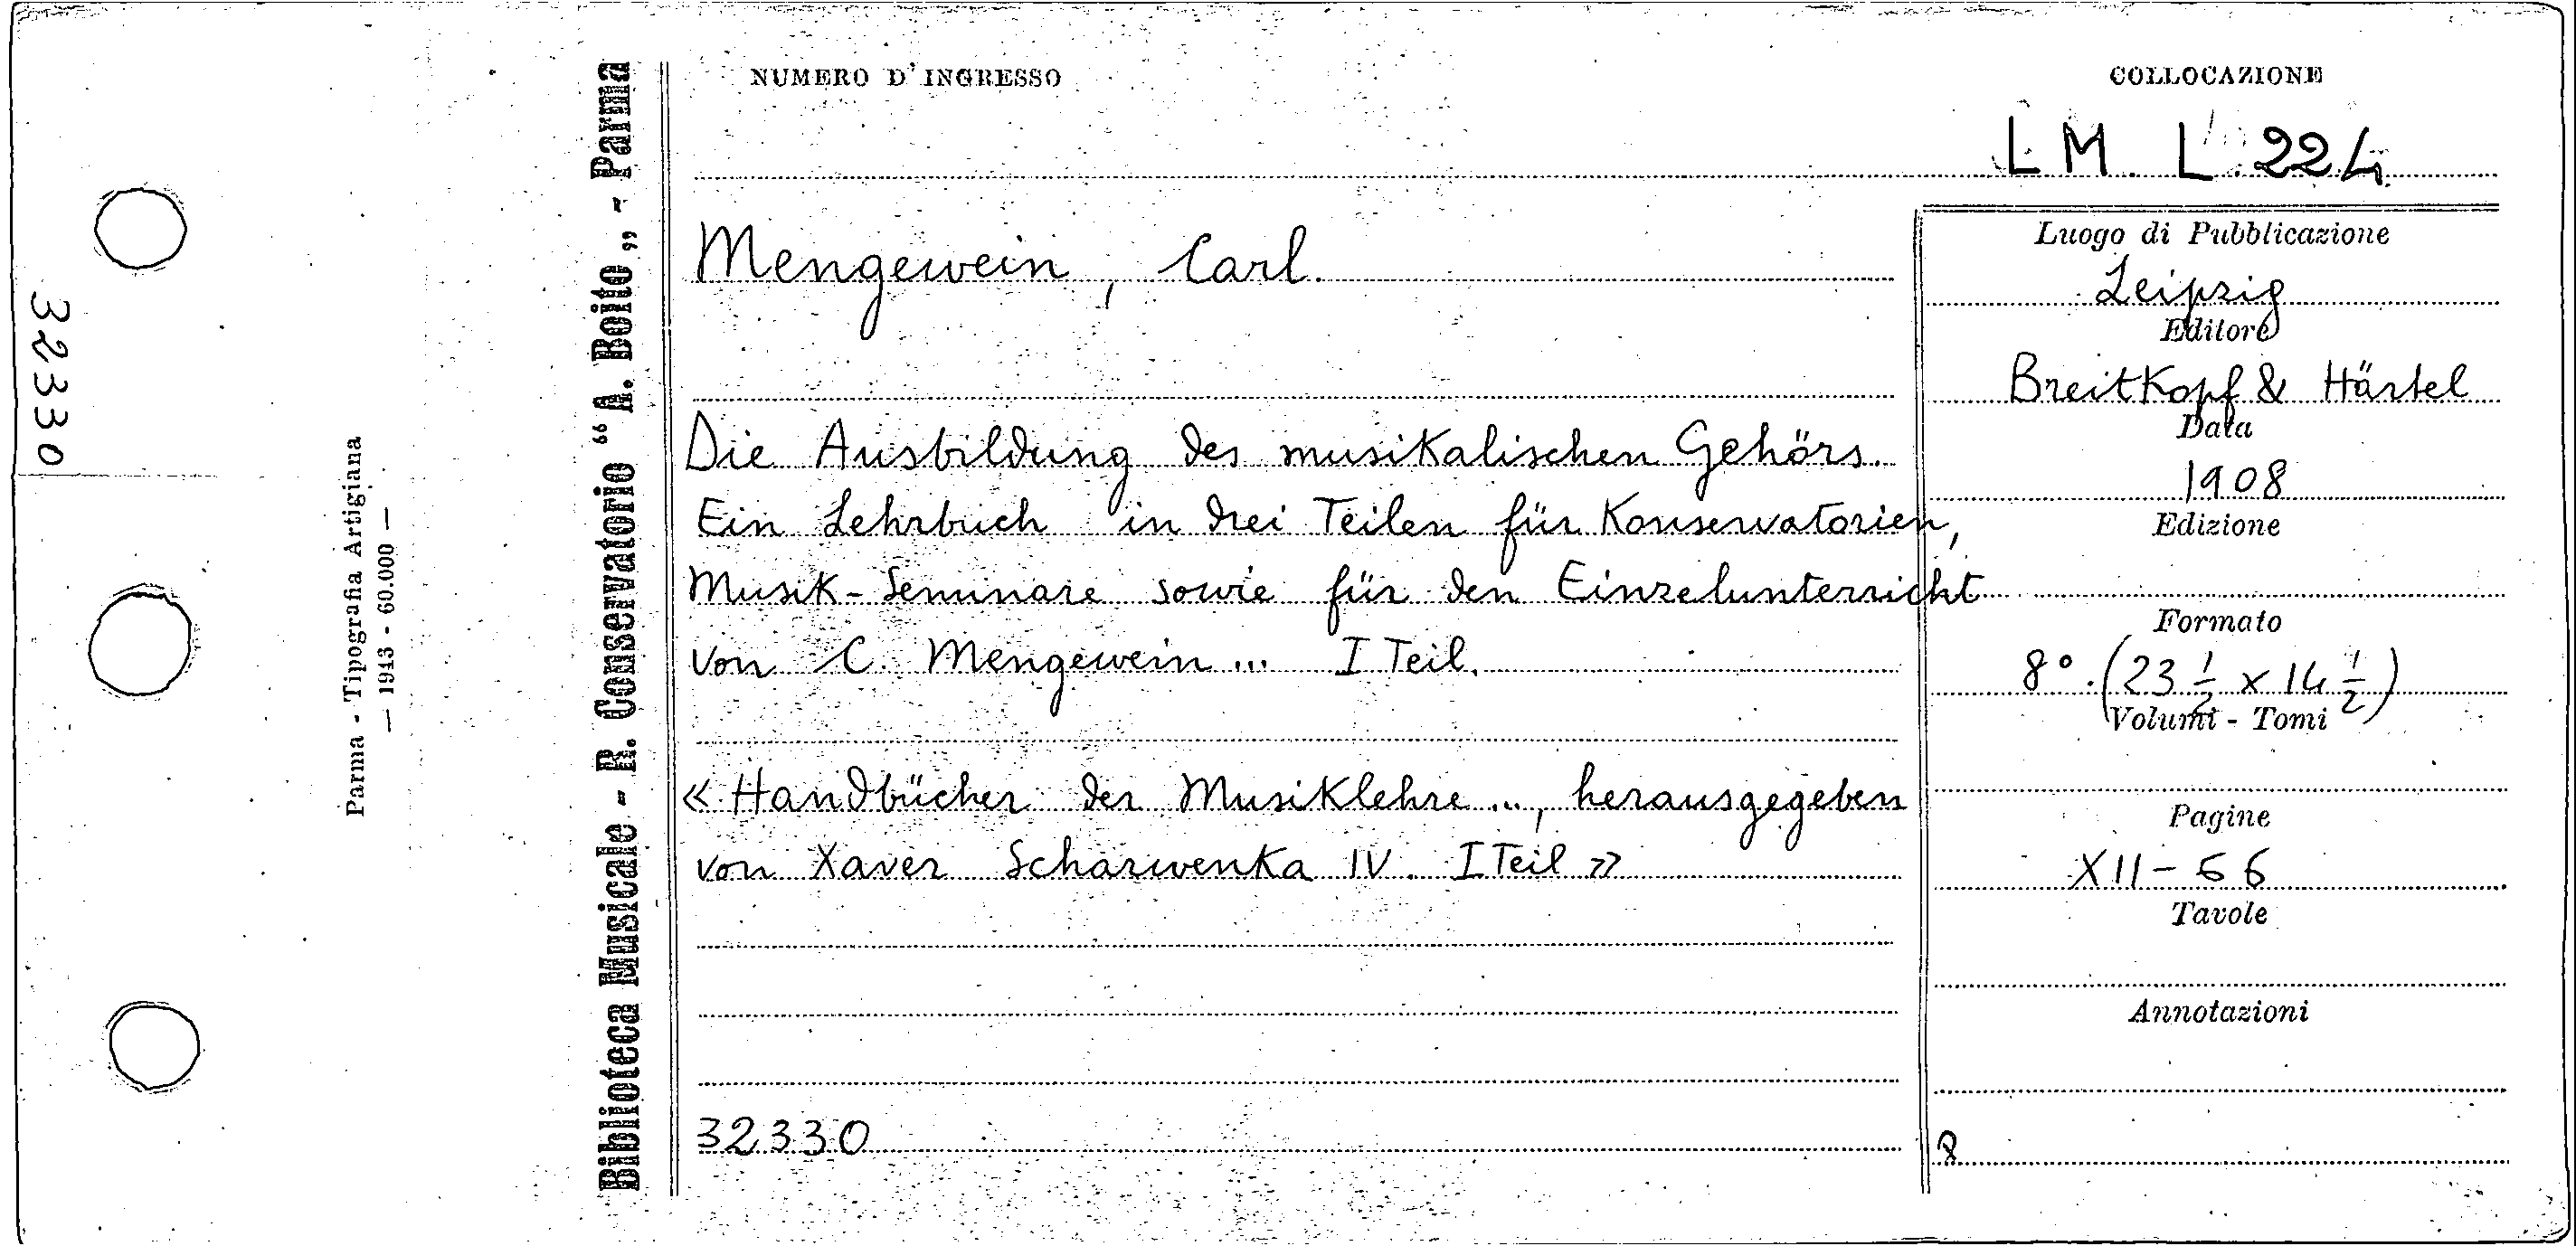 NUMERO D'INGRESSO
COLLOCAZIONE
LM. L. 224
Mengewein, Carl.
Die Ausbildung des musikalischen Gehörs.
Ein Lehrbuch in drei Teilen für Konservatorien,
Musik-Seminare sowie für den Einzelunterricht
von C. Mengewein... I Teil.
«Handbücher der Musiklehre..., herausgegeben
von Xaver Scharwenka IV. I Teil»
32330
Luogo di Pubblicazione
Leipzig
Editore
Breitkopf & Härtel
Data
1908
Edizione
Formato
8° (23 1/2 x 14 1/2)
Volumi - Tomi
Pagine
XII-66
Tavole
Annotazioni
Biblioteca Musicale - R. Conservatorio “A. Boito„ - Parma
Parma - Tipografia Artigiana
— 1943 - 60.000 —
32330